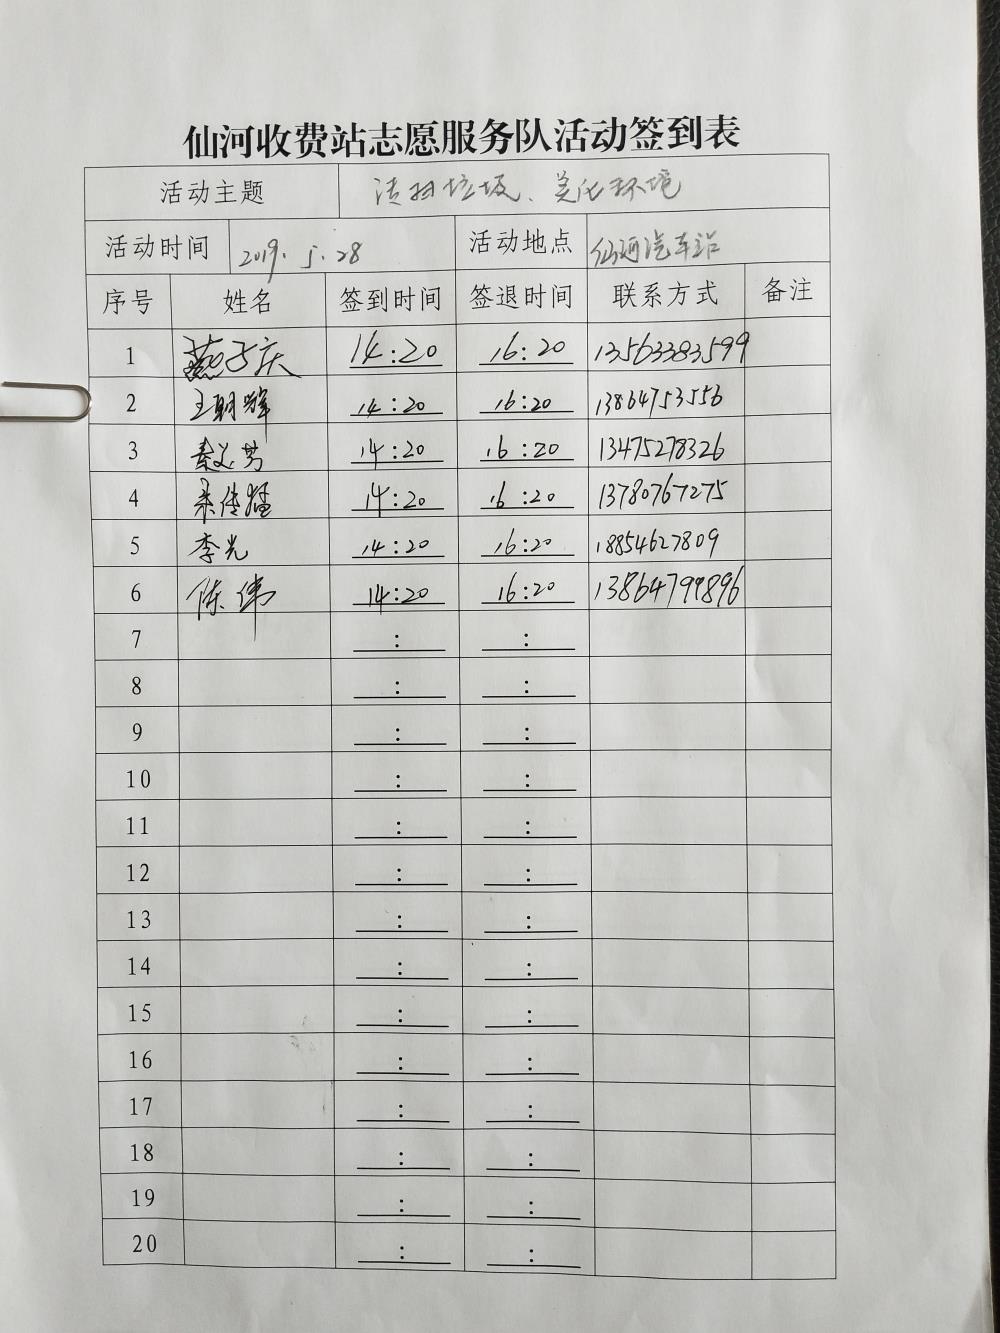 仙河收费站志愿服务队活动签到表
活动主题 清扫垃圾、美化环境
活动时间 2019.5.28 活动地点 仙河汽车站
序号 姓名 签到时间 签退时间 联系方式 备注
1 燕子庆 14:20 16:20 13563383599
2 王朝晖 14:20 16:20 13864753556
3 秦义芳 14:20 16:20 13475278326
4 14:20 16:20 13780767275
5 李光 14:20 16:20 18854627809
6 陈伟 14:20 16:20 13864799896
7 : :
8 : :
9 : :
10 : :
11 : :
12 : :
13 : :
14 : :
15 : :
16 : :
17 : :
18 : :
19 : :
20 : :